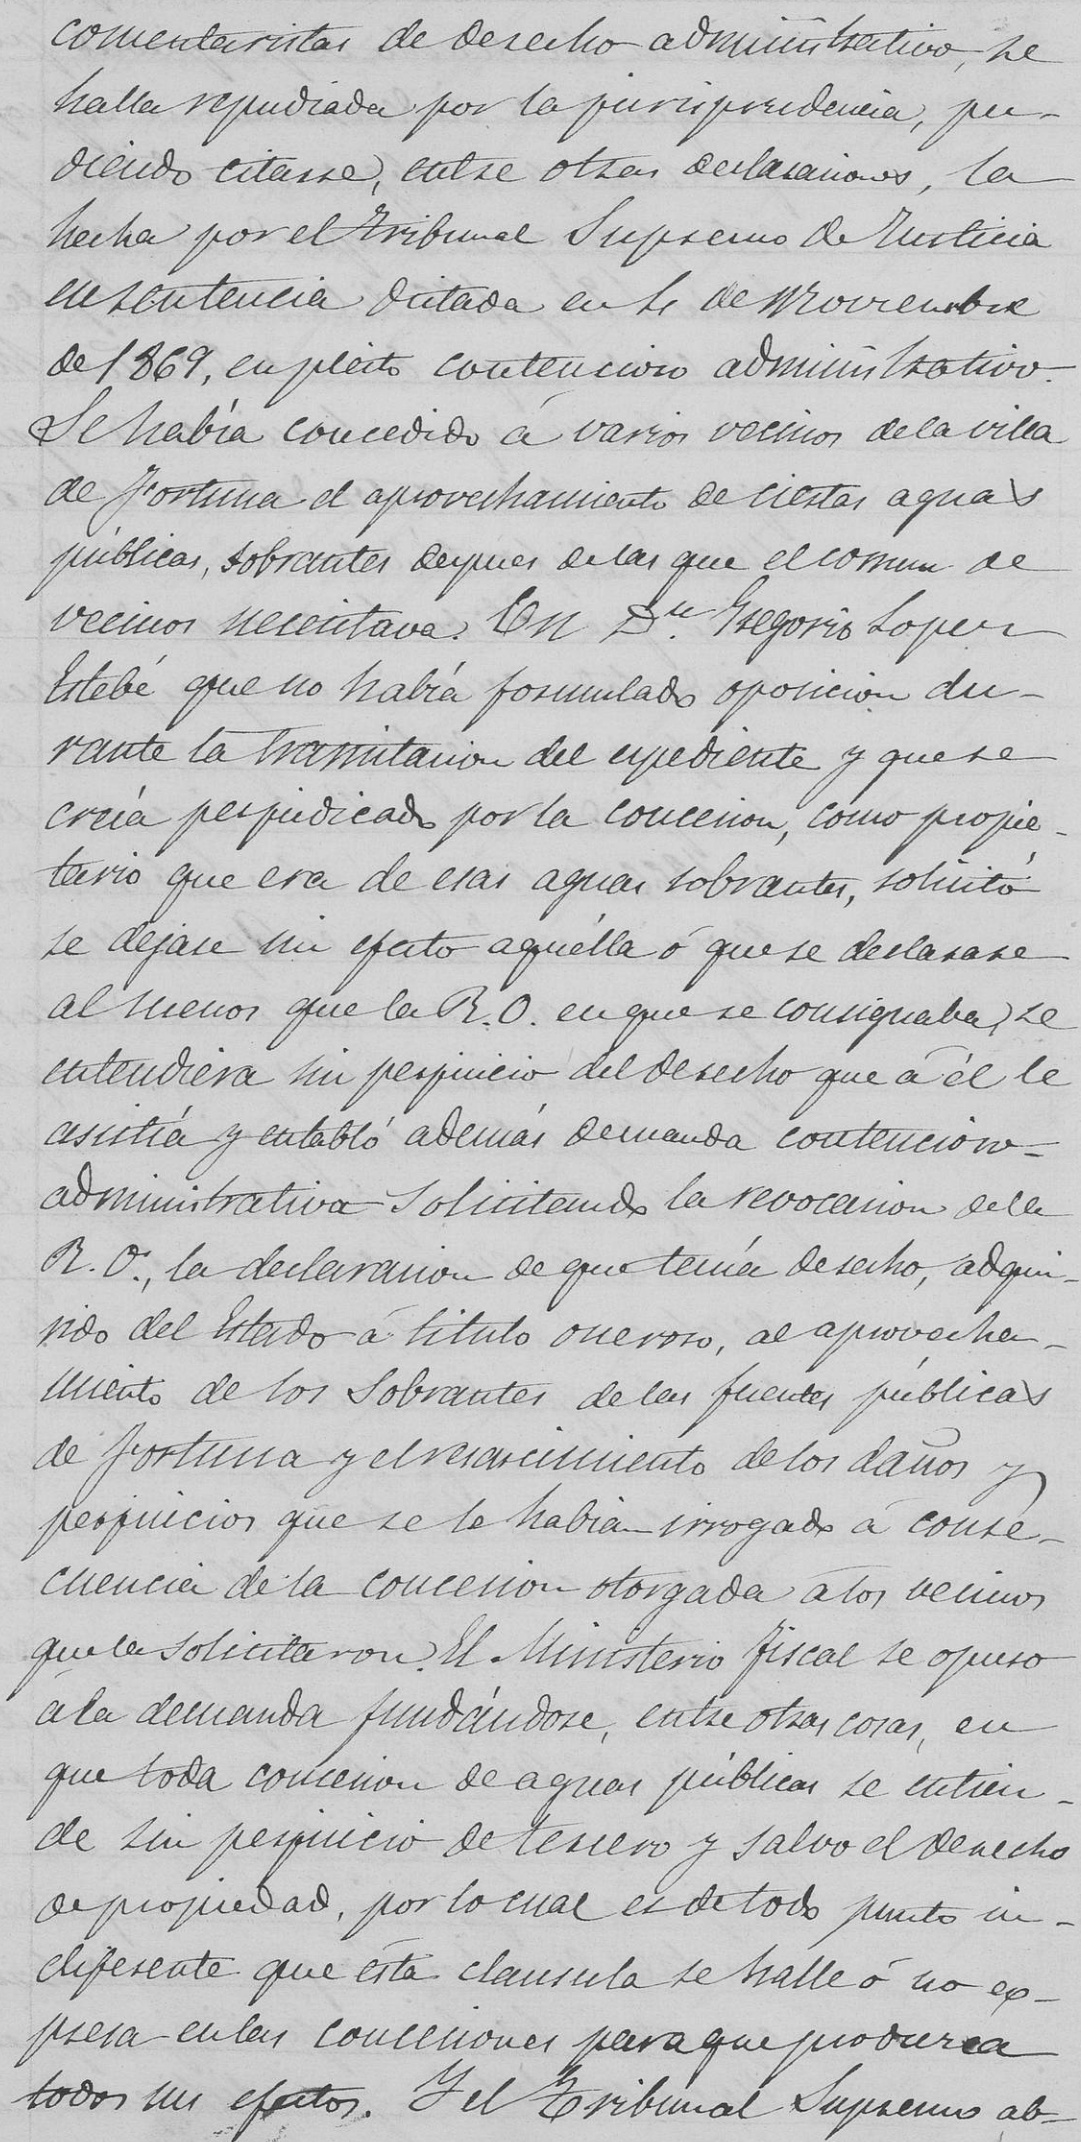 comentaristas de derecho administrativo, se
halla repudiada por la jurisprudencia, pu-
diendo citarse, entre otras declaraciones, la
hecha por el Tribunal Supremo de Justicia
en sentencia dictada en de Noviembre
de 1869, en pleito contencioso administrativo.
Se había concedido á varios vecinos de la villa
de Fortuna el aprovechamiento de ciertas aguas
públicas, sobrantes despues de las que el comun de
vecinos necesitava. Un Dn. Gregorio Lopez
Estebé que no había formulado oposicion du-
rante la tramitacion del expediente y que se
creía perjudicado por la concesion, como propie-
tario que era de esas aguas sobrantes, solicitó
se dejase sin efecto aquélla ó que se declarase
al menos que la R. O. en que se consignaba, se
entendiera sin perjuicio del derecho que á él le
asistía y entabló además demanda contencioso-
administrativa solicitando la revocacion de la
R. O., la declaracion de que tenía derecho, adqui-
rido del Estado á titulo oneroso, al aprovecha-
miento de los sobrantes de las fuentes públicas
de Fortuna y el resarcimiento de los daños y
perjuicios que se le habian irrogado á conse-
cuencia de la concesion otorgada á los vecinos
que la solicitaron. El Ministerio fiscal se opuso
á la demanda fundándose, entre otras cosas, en
que toda concesion de aguas públicas se entien-
de sin perjuicio de tercero y salvo el derecho
de propiedad, por lo cual es de todo punto in-
diferente que ésta clausula se halle ó no ex-
presa en las concesiones para que produzca
todos sus efectos. Y el Tribunal Supremo ab-